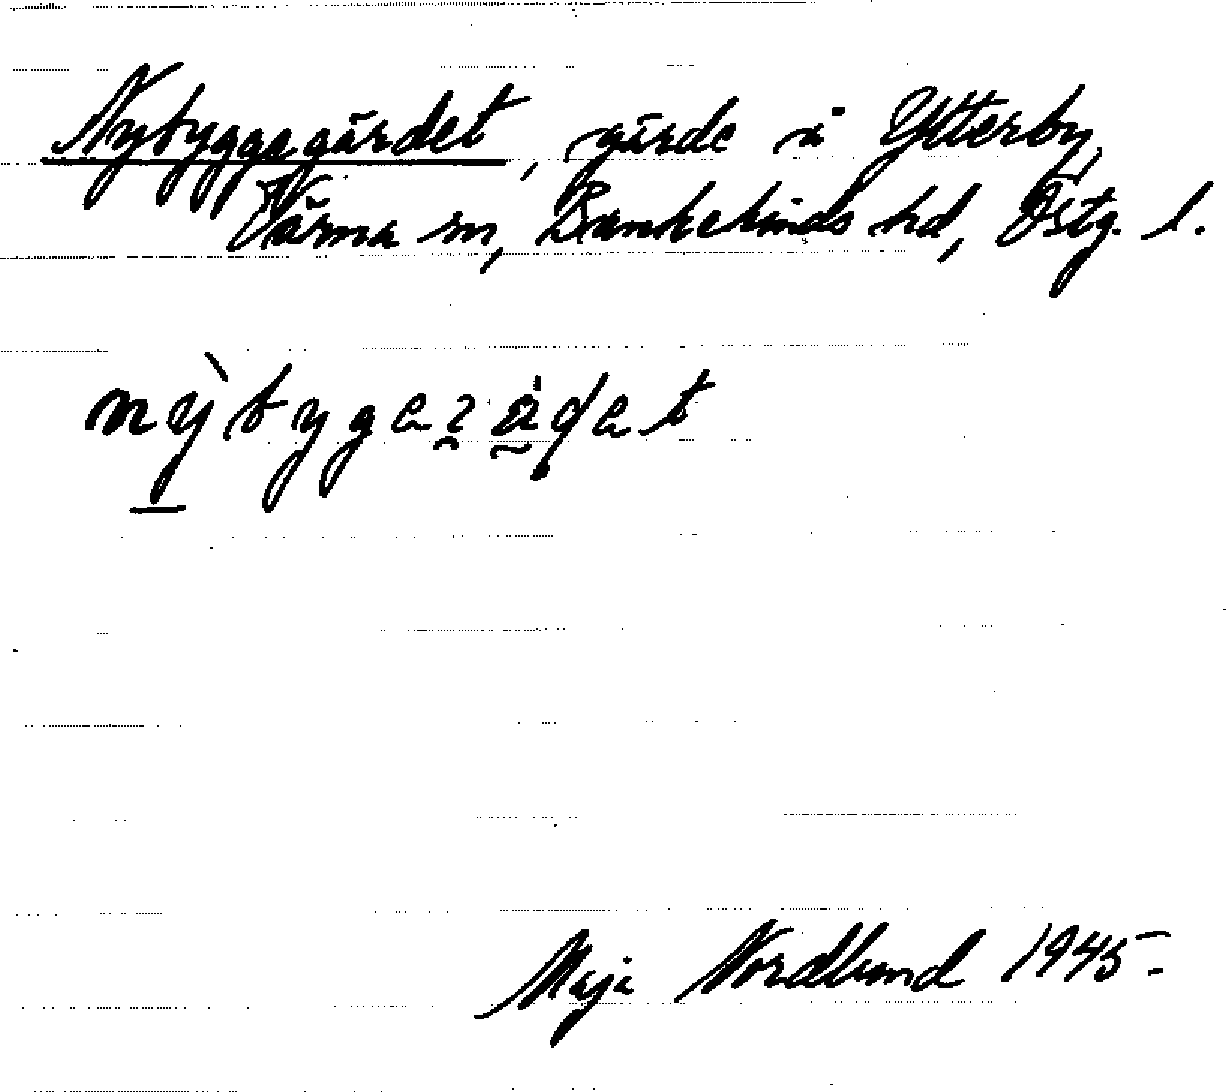 Nybyggegärdet, gärde i Ytterby,
Värna sn, Bankekinds hd, Östg. l.
Maja Nordlund 1945.